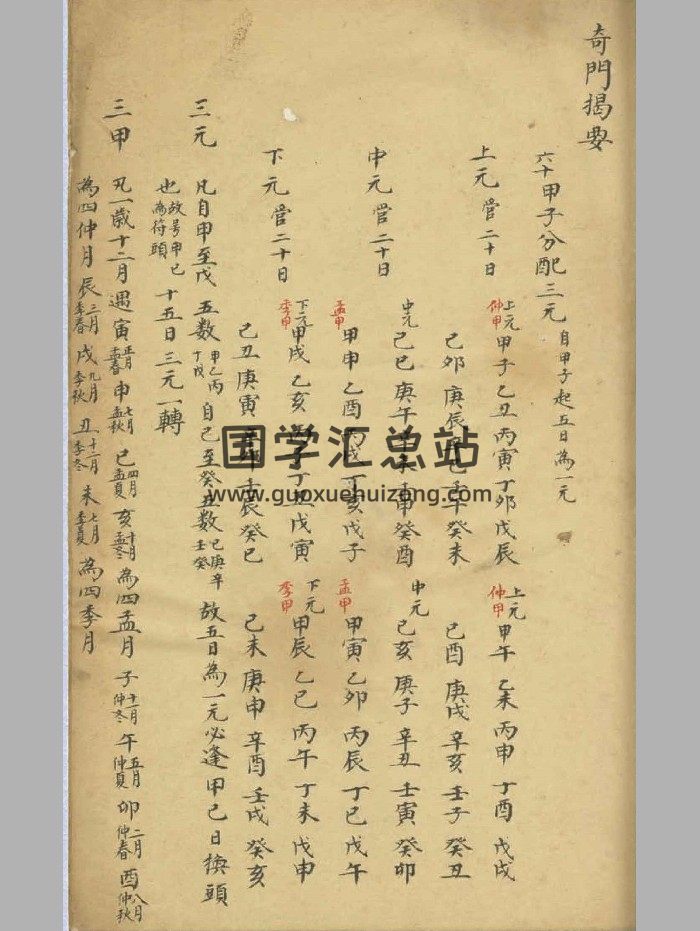 奇門揭要
六十甲子分配三元 自甲子起五日為一元
上元管二十日 上元 仲甲 甲子 乙丑 丙寅 丁卯 戊辰 上元 仲甲 甲午 乙未 丙申 丁酉 戊戌
己卯 庚辰 辛巳 壬午 癸未 己酉 庚戌 辛亥 壬子 癸丑
中元管二十日 中元 己巳 庚午 辛未 壬申 癸酉 中元 己亥 庚子 辛丑 壬寅 癸卯
孟甲 甲申 乙酉 丙戌 丁亥 戊子 孟甲 甲寅 乙卯 丙辰 丁巳 戊午
下元管二十日 下元 季甲 甲戌 乙亥 丙子 丁丑 戊寅 下元 季甲 甲辰 乙巳 丙午 丁未 戊申
己丑 庚寅 辛卯 壬辰 癸巳 己未 庚申 辛酉 壬戌 癸亥
三元 凡自甲至戊五数 甲乙丙丁戊 自己至癸五数 己庚辛壬癸 故五日為一元必逢甲己日換頭
也 故号甲己為符頭 十五日三元一轉
三甲 凡一歲十二月遇寅 正月孟春 申 七月孟秋 巳 四月孟夏 亥 十月孟冬 為四孟月 子 十一月仲冬 午 五月仲夏 卯 二月仲春 酉 八月仲秋
為四仲月 辰 三月季春 戌 九月季秋 丑 十二月季冬 未 七月季夏 為四季月
国学汇总站
www.guoxuehuizong.com